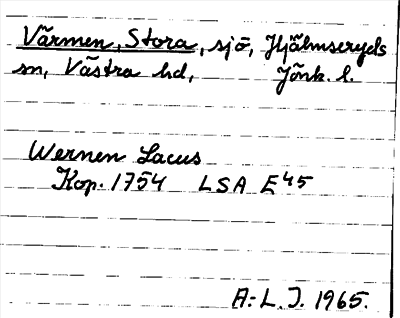 Värmen, Stora, sjö, Hjälmseryds
sn, Västra hd, Jönk. l.
Wernen Lacus
Kop. 1754 LSA E45
A.-L. J. 1965.